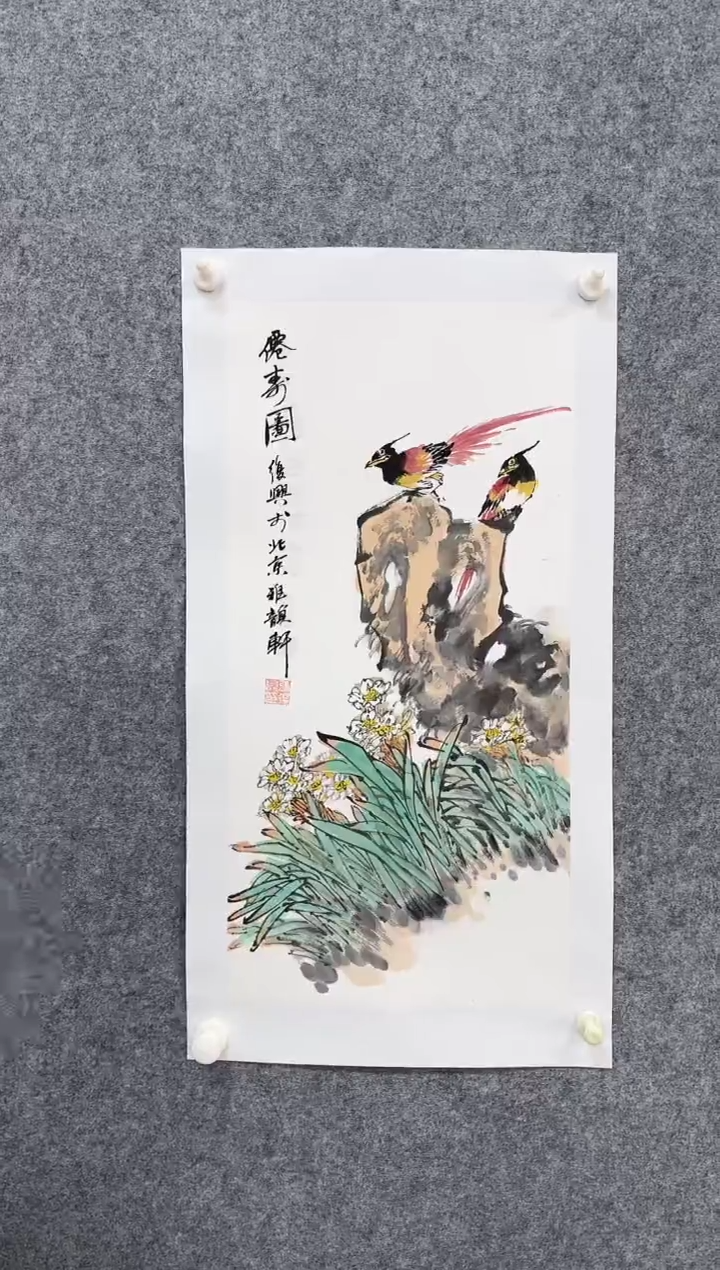 僊寿圖
復興於北京雅韻軒